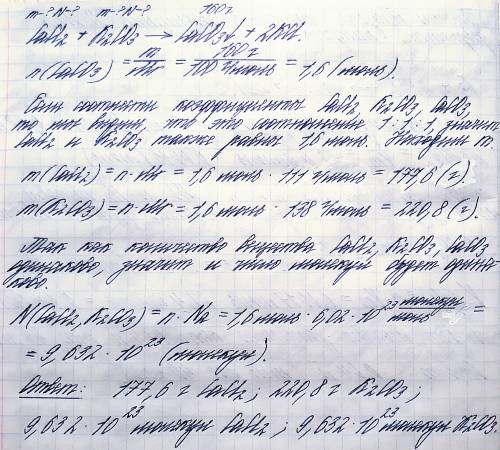 m-? N-? m-? N-? 160 г
CaCl₂ + K₂CO₃ → CaCO₃↓ + 2KCl.
n(CaCO₃) = m/Mr = 160 г/100 г/моль = 1,6 (моль).
Если соотнести коэффициенты CaCl₂, K₂CO₃, CaCO₃,
то мы видим, что это соотношение 1:1:1, значит
CaCl₂ и K₂CO₃ также равны 1,6 моль. Находим m.
m(CaCl₂) = n·Mr = 1,6 моль · 111 г/моль = 177,6 (г).
m(K₂CO₃) = n·Mr = 1,6 моль · 138 г/моль = 220,8 (г).
Так как количество вещества CaCl₂, K₂CO₃, CaCO₃
одинаково, значит и число молекул будет одина-
ково.
N(CaCl₂, K₂CO₃) = n·Na = 1,6 моль · 6,02 · 10²³ молекул/моль =
= 9,632 · 10²³ (молекул).
Ответ: 177,6 г CaCl₂; 220,8 г K₂CO₃;
9,632 · 10²³ молекул CaCl₂; 9,632 · 10²³ молекул K₂CO₃.